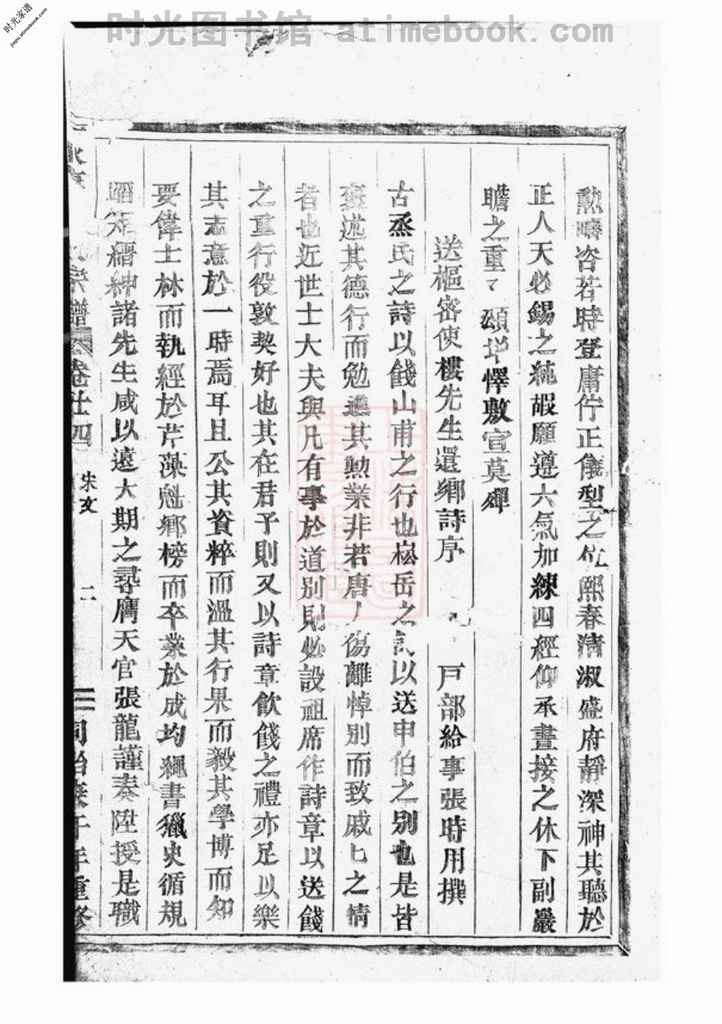 时光图书馆 atimebook.com
时光家谱
jiapu.atimebook.com
勲疇咨若時登庸佇正儀型之位熙春清淑盛府靜深神其聽於
正人天必錫之純嘏願遵六氣加練四經仰承晝接之休下副巖
瞻之重〻頌增懌敷宣莫殫
送樞密使樓先生還鄉詩序 戸部給事張時用撰
古烝氏之詩以餞山甫之行也崧岳之詩以送申伯之别也是皆
述其德行而勉進其勲業非若唐人傷離悼別而致戚匕之情
者也近世士大夫與凡有事於道别則必設祖席作詩章以送餞
之重行役敦契好也其在君子則又以詩章飲餞之禮亦足以樂
其志意於一時焉耳且公其資粹而溫其行果而毅其學博而知
要偉士林而執經於芹藻魁鄉榜而卒業於成均繩書獵史循規
縉紳諸先生咸以遠大期之尋膺天官張龍謹奏陞授是職
宗譜 卷廿四 宋文 二 同治庚午年重修